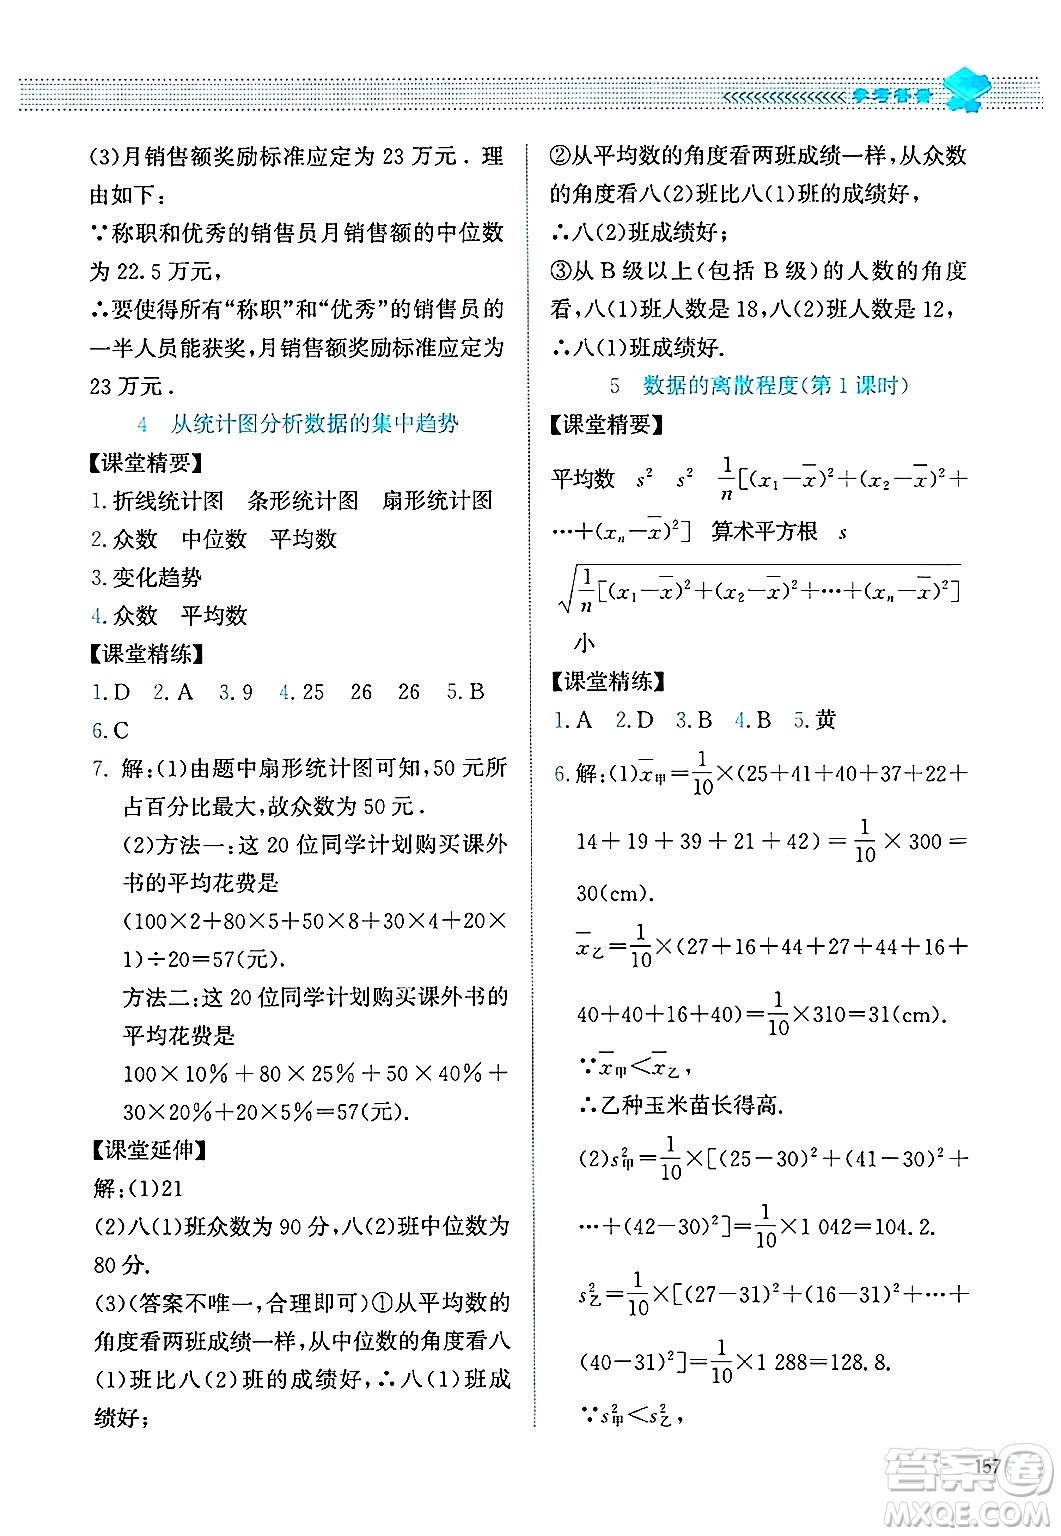 参考答案
(3)月销售额奖励标准应定为 23 万元．理
由如下：
∵称职和优秀的销售员月销售额的中位数
为 22.5 万元，
∴要使得所有“称职”和“优秀”的销售员的
一半人员能获奖，月销售额奖励标准应定为
23 万元．
4 从统计图分析数据的集中趋势
【课堂精要】
1. 折线统计图 条形统计图 扇形统计图
2. 众数 中位数 平均数
3. 变化趋势
4. 众数 平均数
【课堂精练】
1. D 2. A 3. 9 4. 25 26 26 5. B
6. C
7. 解：(1)由题中扇形统计图可知，50 元所
占百分比最大，故众数为 50 元．
(2)方法一：这 20 位同学计划购买课外
书的平均花费是
(100×2+80×5+50×8+30×4+20×
1)÷20=57(元).
方法二：这 20 位同学计划购买课外书的
平均花费是
100×10%+80×25%+50×40%+
30×20%+20×5%=57(元).
【课堂延伸】
解：(1)21
(2)八(1)班众数为 90 分，八(2)班中位数为
80 分.
(3)(答案不唯一，合理即可)①从平均数的
角度看两班成绩一样，从中位数的角度看八
(1)班比八(2)班的成绩好，∴八(1)班成
绩好；
②从平均数的角度看两班成绩一样，从众数
的角度看八(2)班比八(1)班的成绩好，
∴八(2)班成绩好；
③从 B 级以上(包括 B 级)的人数的角度
看，八(1)班人数是 18，八(2)班人数是 12，
∴八(1)班成绩好.
5 数据的离散程度(第 1 课时)
【课堂精要】
平均数 s² s² 1/n[(x₁−x̄)²+(x₂−x̄)²+
…+(xₙ−x̄)²] 算术平方根 s
√(1/n[(x₁−x̄)²+(x₂−x̄)²+…+(xₙ−x̄)²])
小
【课堂精练】
1. A 2. D 3. B 4. B 5. 黄
6. 解：(1)x̄甲=1/10×(25+41+40+37+22+
14+19+39+21+42)=1/10×300=
30(cm).
x̄乙=1/10×(27+16+44+27+44+16+
40+40+16+40)=1/10×310=31(cm).
∵x̄甲<x̄乙，
∴乙种玉米苗长得高.
(2)s²甲=1/10×[(25−30)²+(41−30)²+
…+(42−30)²]=1/10×1 042=104.2.
s²乙=1/10×[(27−31)²+(16−31)²+…+
(40−31)²]=1/10×1 288=128.8.
∵s²甲<s²乙，
157
答案圈
MXQE.COM